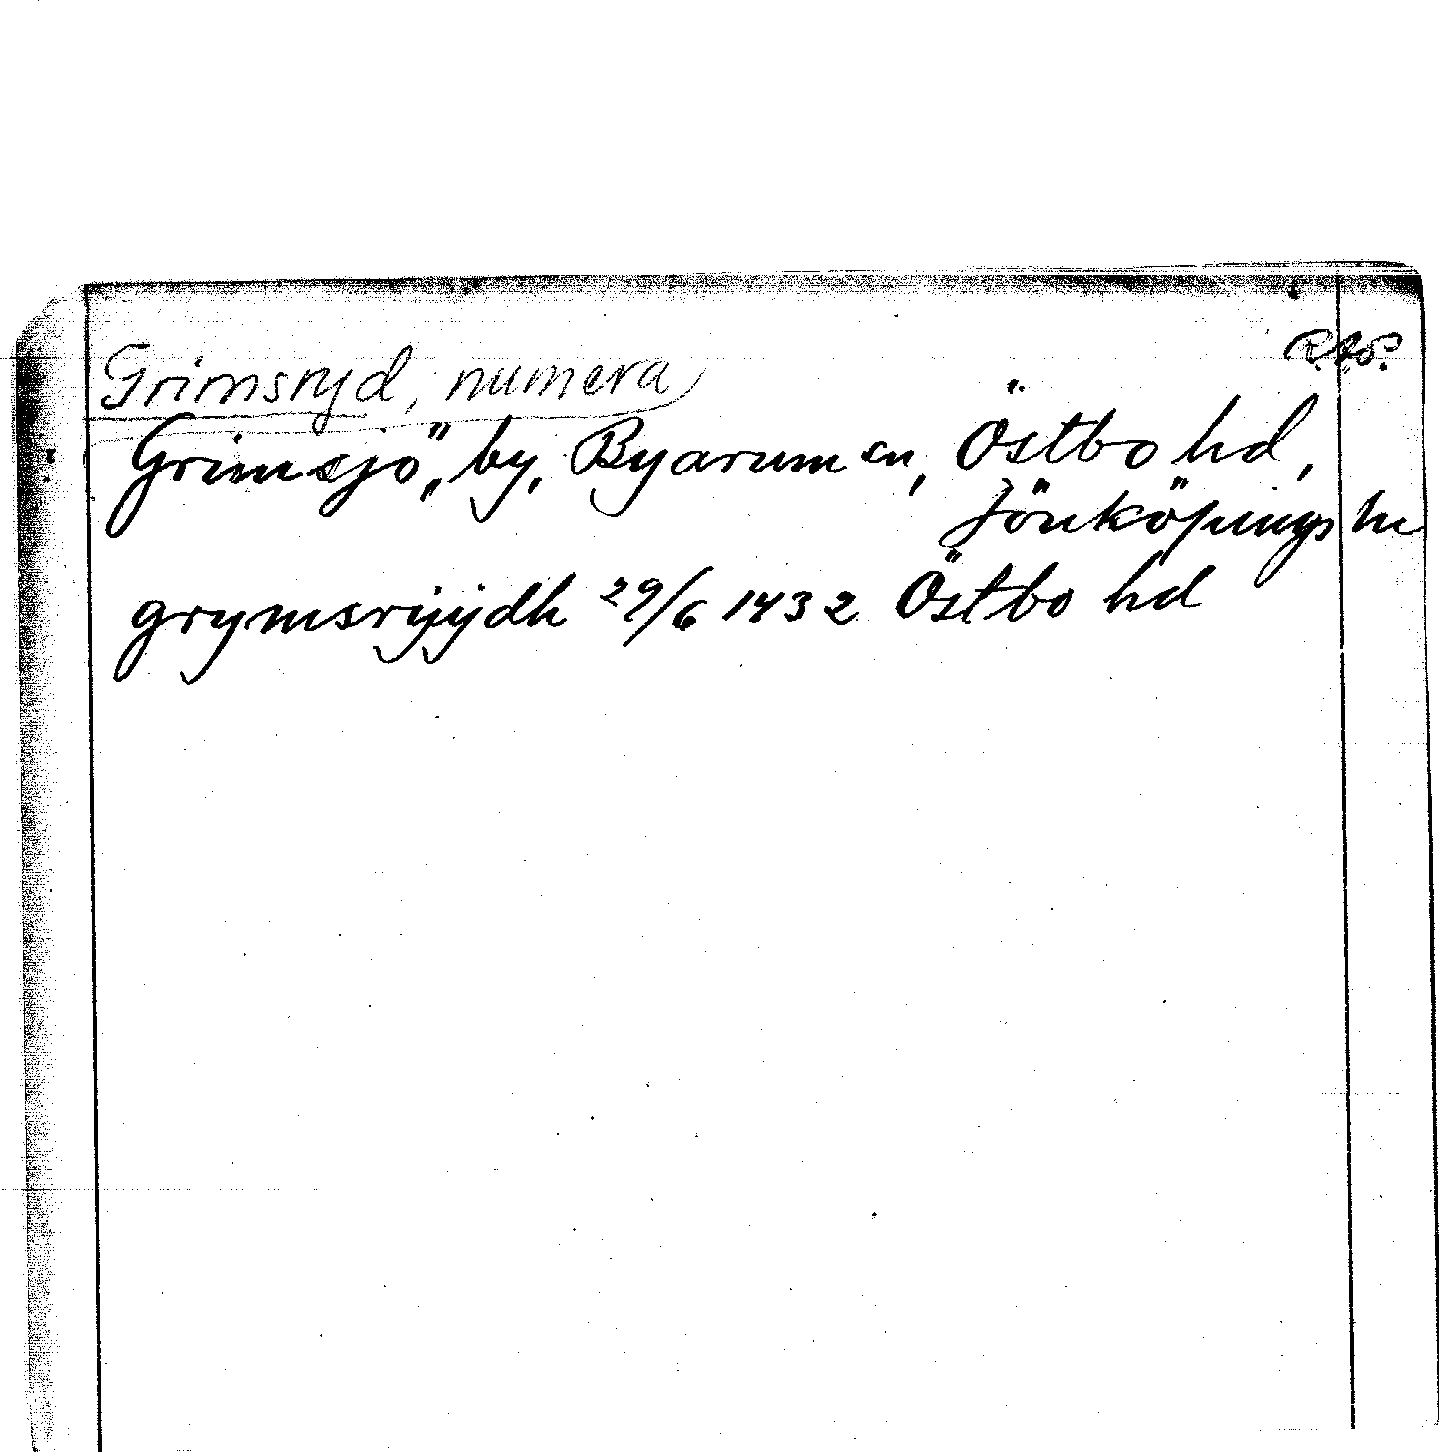 R.A.P.
Grimsryd, numera
Grimsjö, by, Byarum sn, Östbo hd,
Jönköpings ln
grymsrÿÿdh 29/6 1432 Östbo hd